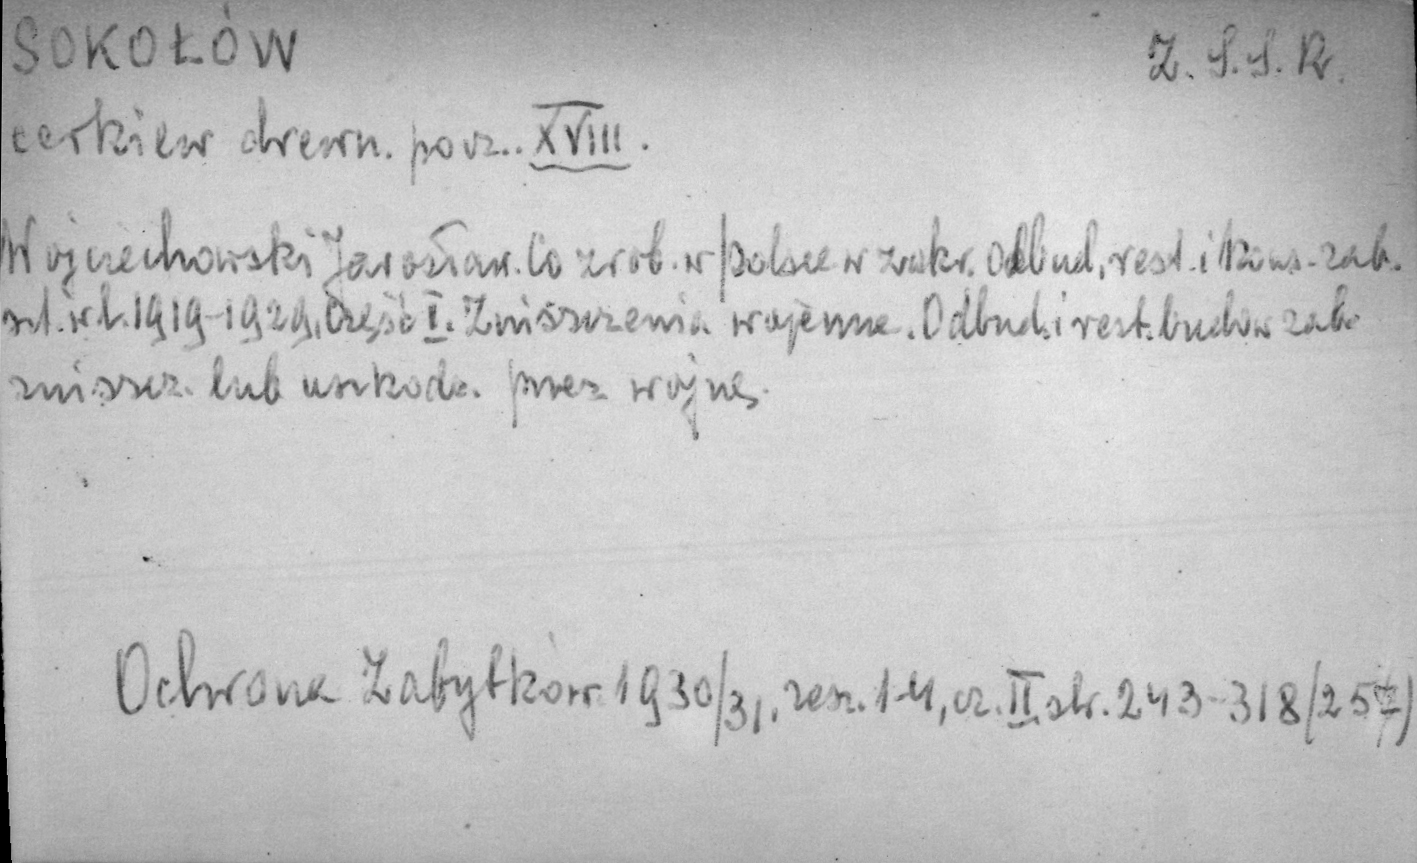 SOKOŁÓW Z.S.S.R.
cerkiew drewn. pocz.. XVIII.
Wojciechowski Jarosław. Co zrob. w Polsce w zakr. Odbud, rest. i kons. zab.
szt. w l. 1919-1929, Część I. Zniszczenia wojenne. Odbud. i rest. budow zab.
zniszcz. lub uszkodz. przez wojnę.
Ochrona Zabytków 1930/31, zesz. 1-4, cz. II str. 243-318/257)